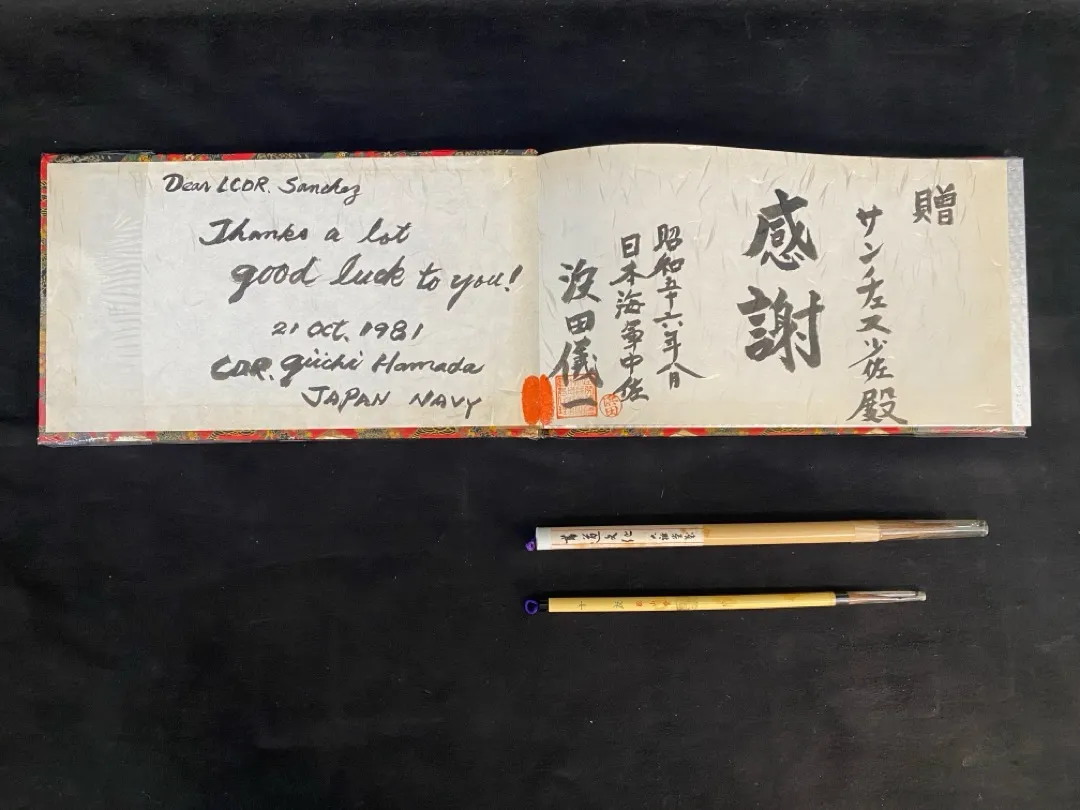 Dear LCDR. Sanchez
Thanks a lot
good luck to you!
21 Oct. 1981
CDR. Giichi Hamada
JAPAN NAVY
贈
サンチェス少佐殿
感謝
昭和五十六年八月
日本海軍中佐
濱田儀一